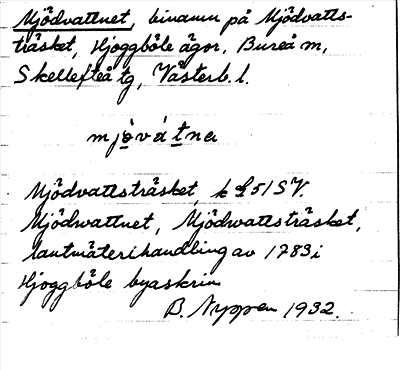 Mjödvattnet, binamn på Mjödvatts-
träsket, Hjoggböle ägor, Bureå sn,
Skellefteå tg, Västerb. l.
mjö̀vátnɐ
Mjödvattsträsket, k 51 SV.
Mjödwattnet, Mjödwattsträsket,
lantmäterihandling av 1783 i
Hjoggböle byaskrin
B. Nyppen 1932.